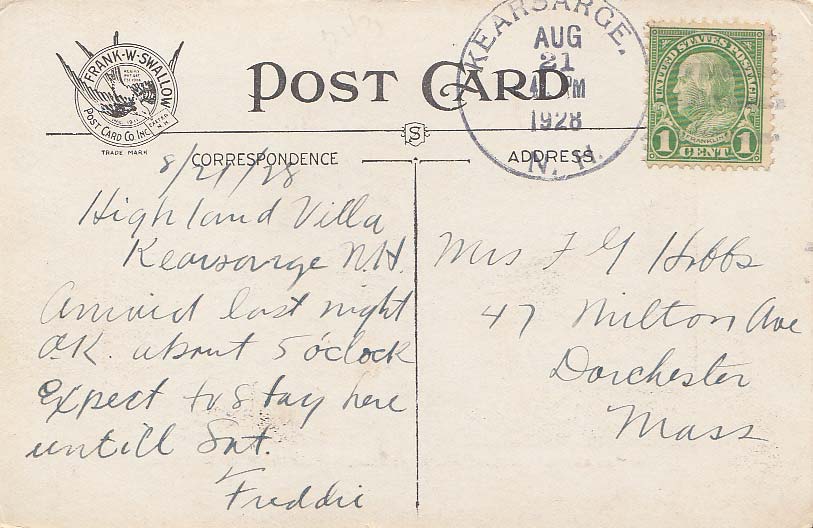 FRANK-W-SWALLOW
POST CARD CO. INC.
EXETER N.H.
TRADE MARK
POST CARD
KEARSARGE,
AUG
21
PM
1928
N. H.
UNITED STATES POSTAGE
FRANKLIN
1 CENT 1
S
CORRESPONDENCE
ADDRESS
8/21/28
Highland Villa
Kearsarge N.H.
Arrived last night
O.K. about 5 o'clock
Expect to stay here
untill Sat.
Freddie
Mrs F G Hobbs
47 Milton Ave
Dorchester
Mass